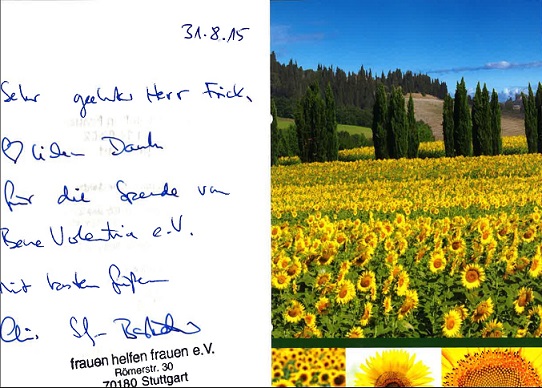 31.8.15
Sehr geehrter Herr Frick,
♡lichen Dank
für die Spende von
Bene Volentia e.V.
mit besten Grüßen
frauen helfen frauen e.V.
Römerstr. 30
70180 Stuttgart